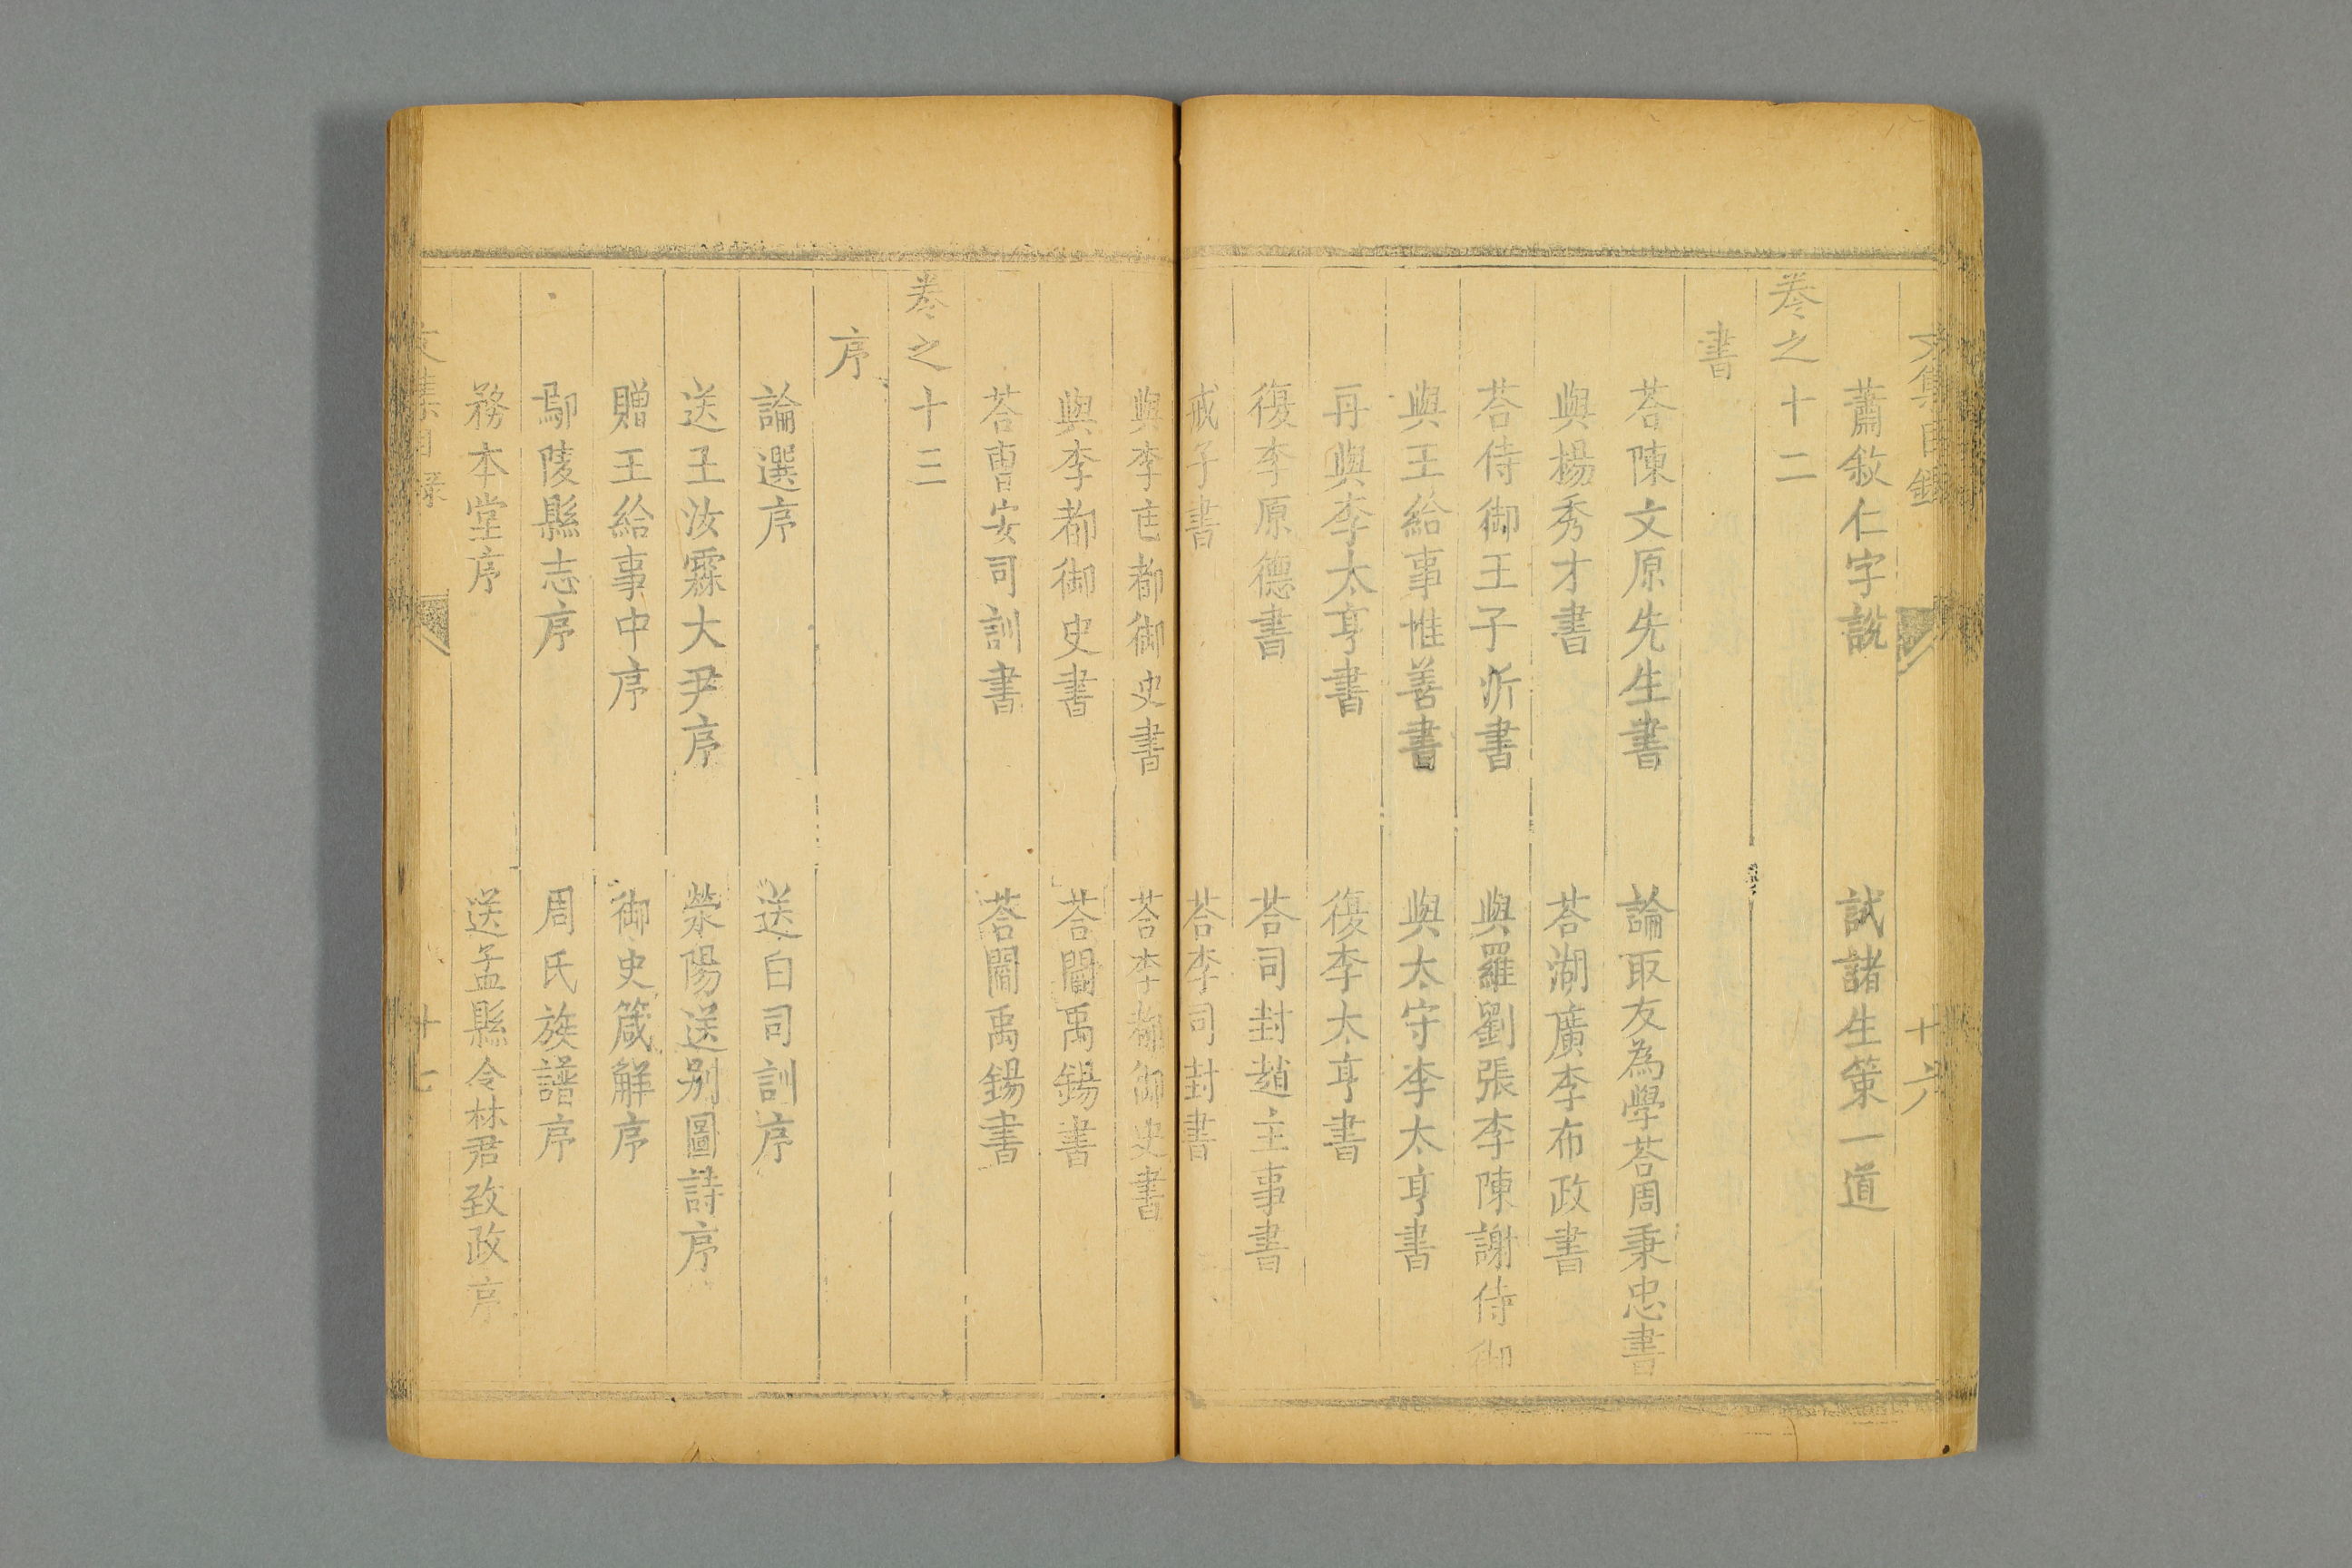 文集目錄 十六
蕭敘仁字說 試諸生策一道
卷之十二
書
荅陳文原先生書 論取友為學荅周秉忠書
與楊秀才書 荅湖廣李布政書
荅侍御王子沂書 與羅劉張李陳謝侍御
與王給事惟善書 與太守李太亨書
再與李太亨書 復李太亨書
復李原德書 荅司封趙主事書
戒子書 荅李司封書
與李 都御史書 荅李都御史書
與李都御史書 荅閻禹錫書
荅曹安司訓書 荅閻禹錫書
卷之十三
序
論選序 送白司訓序
送王汝霖大尹序 滎陽送别圖詩序
贈王給事中序 御史箴解序
鄢陵縣志序 周氏族譜序
務本堂序 送孟縣令林君致政序
文集目錄 十七